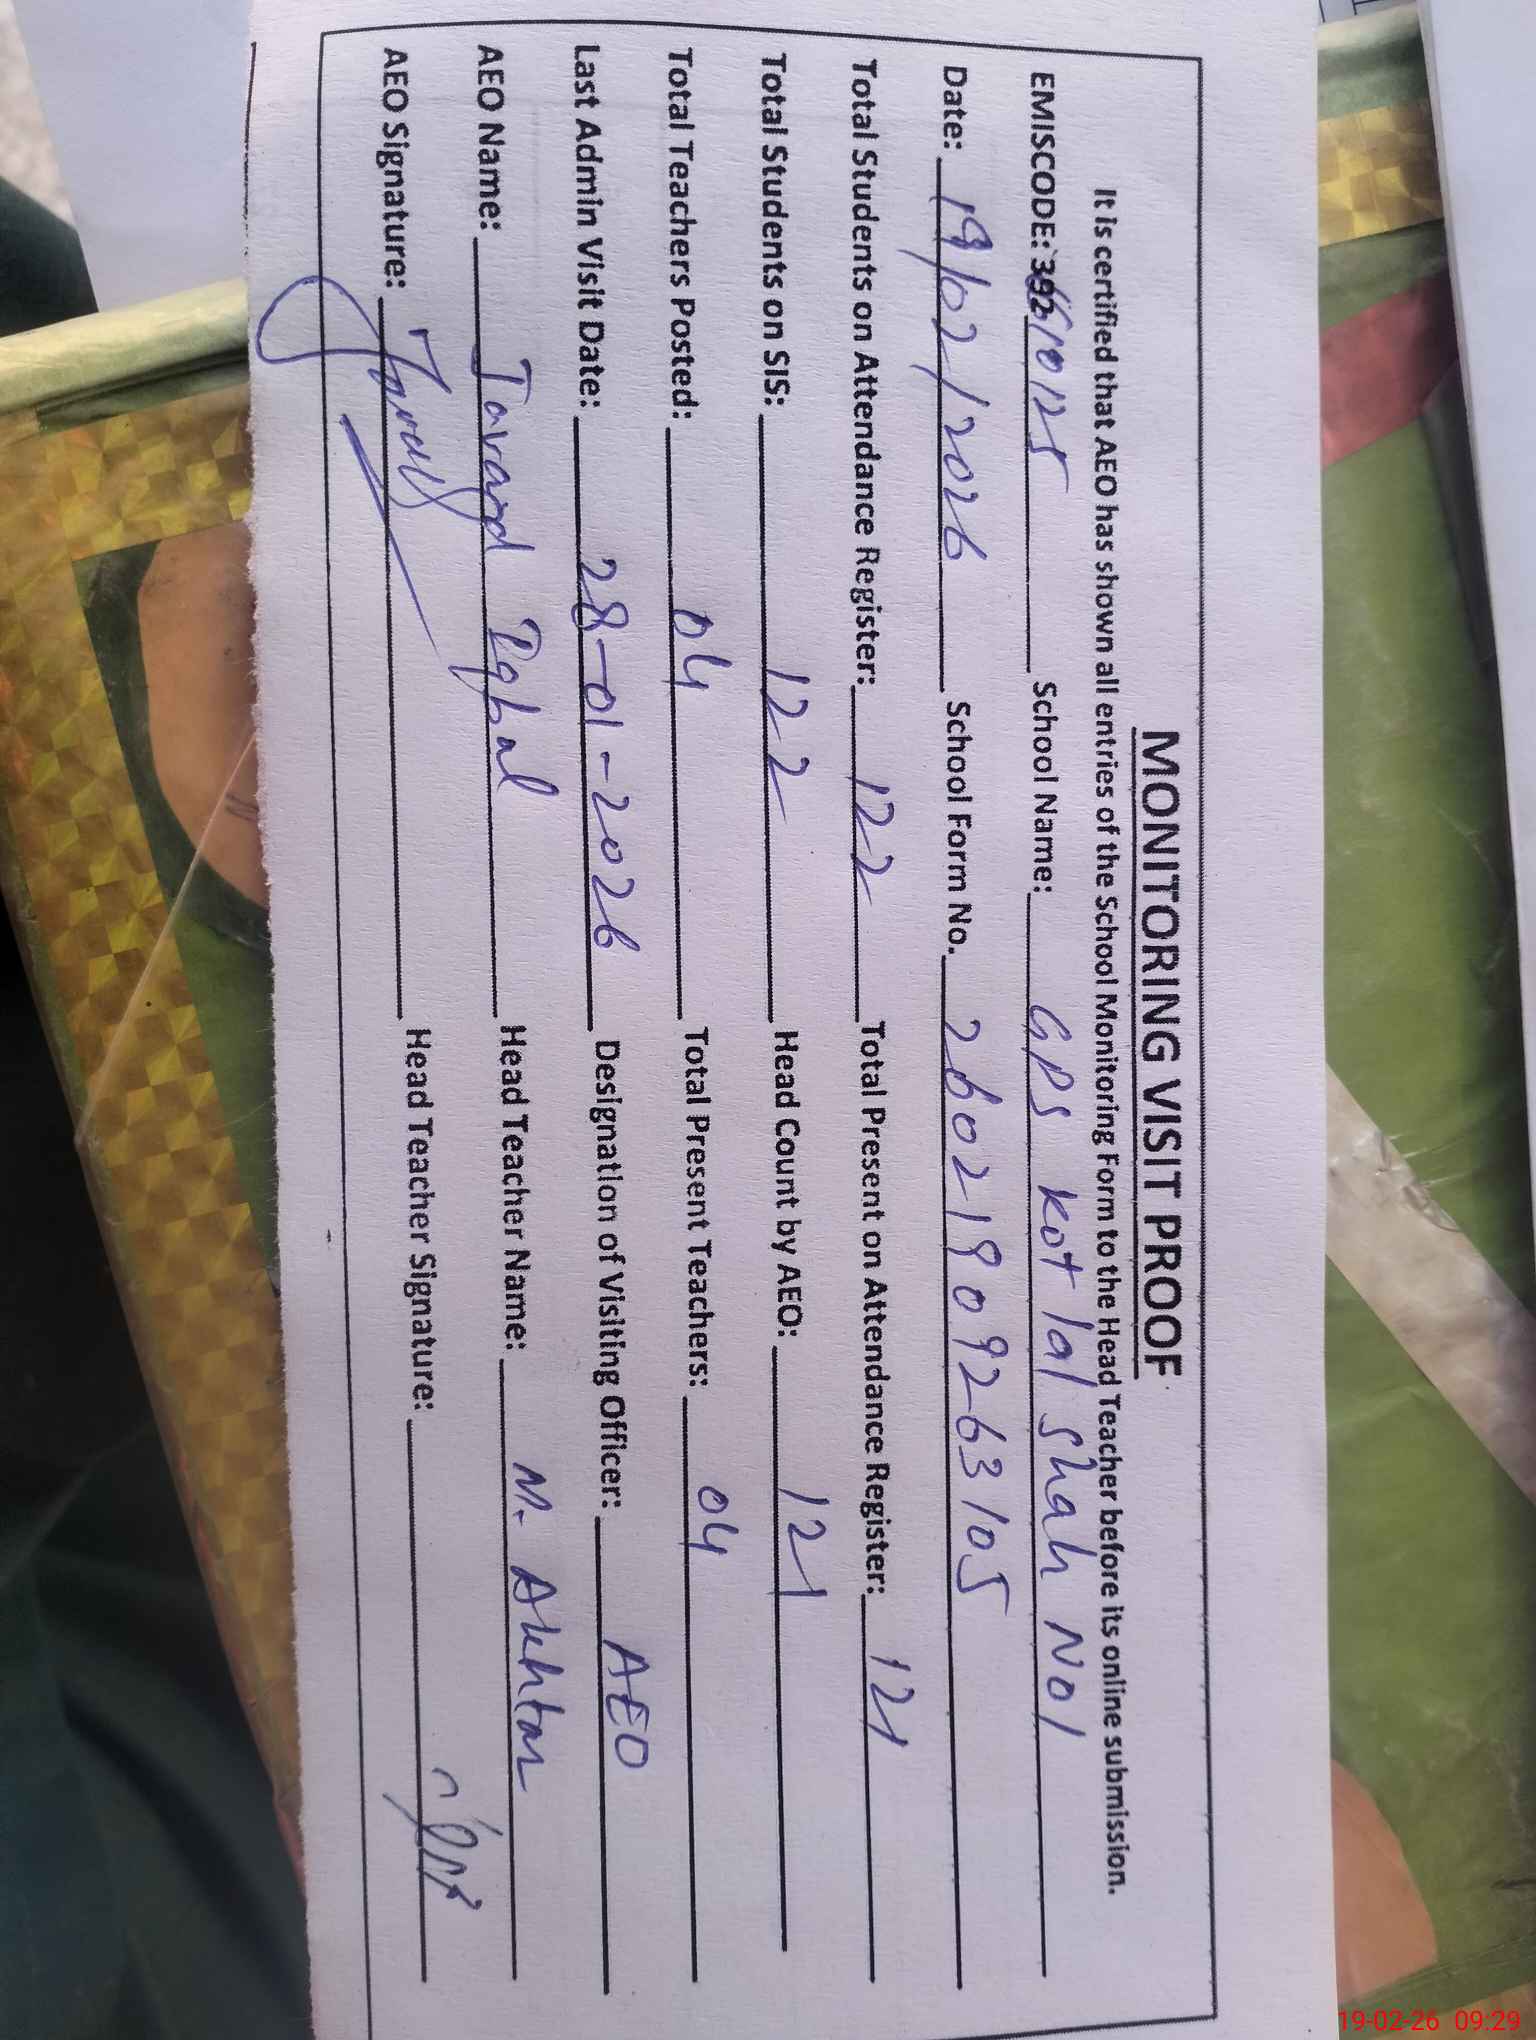 MONITORING VISIT PROOF
It is certified that AEO has shown all entries of the School Monitoring Form to the Head Teacher before its online submission.
EMISCODE: School Name: GPS Kot lal shah No1
Date: 19/02/2026 School Form No. 26021909263105
Total Students on Attendance Register: 122 Total Present on Attendance Register: 121
Total Students on SIS: 122 Head Count by AEO: 121
Total Teachers Posted: 04 Total Present Teachers: 04
Last Admin Visit Date: 28-01-2026 Designation of Visiting Officer: AEO
AEO Name: Iqbal Head Teacher Name: M. Akhtar
AEO Signature: Head Teacher Signature:
19-02-26 09:29